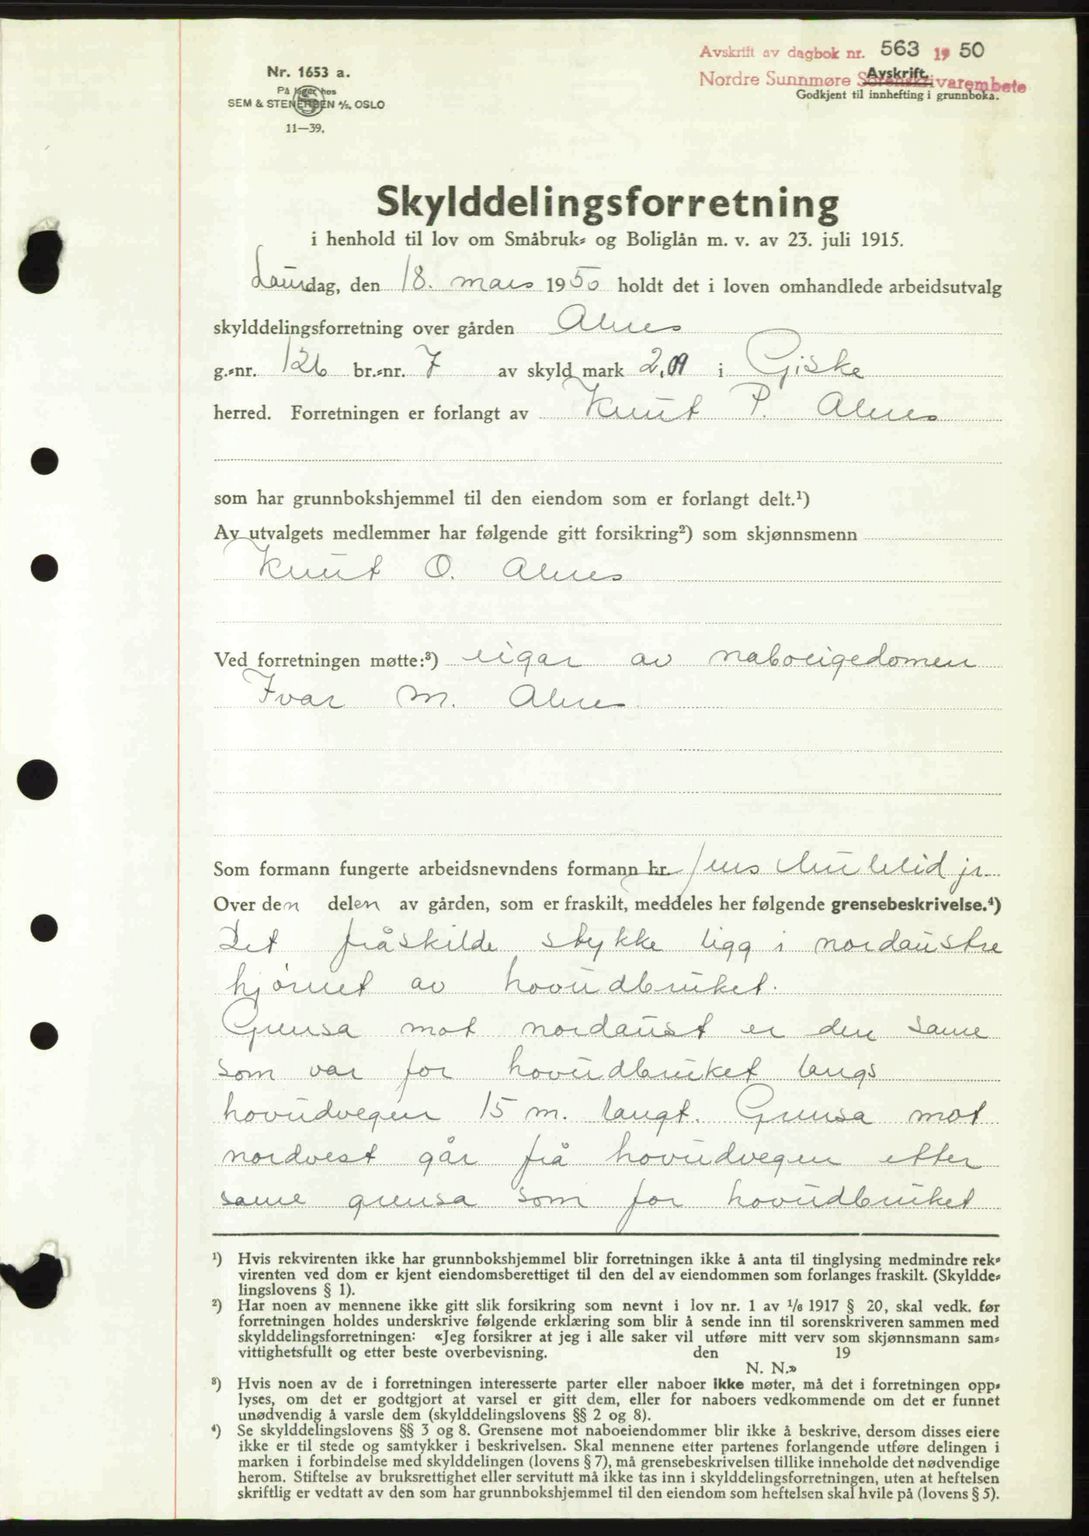 Avskrift av dagbok nr. 563 1950
Nordre Sunnmøre Sorenskrivarembete
Nr. 1653 a.
På lager hos
SEM & STENERSEN A/S, OSLO
11—39.
Avskrift.
Godkjent til innhefting i grunnboka.
Skylddelingsforretning
i henhold til lov om Småbruk- og Boliglån m. v. av 23. juli 1915.
Laurdag, den 18. mars 1950 holdt det i loven omhandlede arbeidsutvalg
skylddelingsforretning over gården Alnes
g.-nr. 126 br.-nr. 7 av skyld mark 2,09 i Giske
herred. Forretningen er forlangt av Knut P. Alnes
som har grunnbokshjemmel til den eiendom som er forlangt delt.¹)
Av utvalgets medlemmer har følgende gitt forsikring²) som skjønnsmenn
Knut O. Alnes
Ved forretningen møtte:³) eigar av naboeigedomen
Ivar M. Alnes
Som formann fungerte arbeidsnevndens formann hr. Jens jr.
Over den delen av gården, som er fraskilt, meddeles her følgende grensebeskrivelse.⁴)
Det fråskilde stykke ligg i nordaustre
hjørnet av hovudbruket.
Grensa mot nordaust er den same
som var for hovudbruket langs
hovudvegen 15 m. langt. Grensa mot
nordvest går frå hovudvegen etter
same grensa som for hovudbruket
¹) Hvis rekvirenten ikke har grunnbokshjemmel blir forretningen ikke å anta til tinglysing medmindre rek-
virenten ved dom er kjent eiendomsberettiget til den del av eiendommen som forlanges fraskilt. (Skyldde-
lingslovens § 1).
²) Har noen av mennene ikke gitt slik forsikring som nevnt i lov nr. 1 av 1/6 1917 § 20, skal vedk. før
forretningen holdes underskrive følgende erklæring som blir å sende inn til sorenskriveren sammen med
skylddelingsforretningen: «Jeg forsikrer at jeg i alle saker vil utføre mitt verv som skjønnsmann sam-
vittighetsfullt og etter beste overbevisning. den 19
N. N.»
³) Hvis noen av de i forretningen interesserte parter eller naboer ikke møter, må det i forretningen opp-
lyses, om det er godtgjort at varsel er gitt dem, eller for naboers vedkommende om det er funnet
unødvendig å varsle dem (skylddelingslovens §§ 2 og 8).
⁴) Se skylddelingslovens §§ 3 og 8. Grensene mot naboeiendommer blir ikke å beskrive, dersom disses eiere
ikke er til stede og samtykker i beskrivelsen. Skal mennene etter partenes forlangende utføre delingen i
marken i forbindelse med skylddelingen (lovens § 7), må grensebeskrivelsen tillike inneholde det nødvendige
herom. Stiftelse av bruksrettighet eller servitutt må ikke tas inn i skylddelingsforretningen, uten at heftelsen
skriftlig er vedtatt av den som har grunnbokshjemmel til den eiendom som heftelsen skal hvile på (lovens § 5).